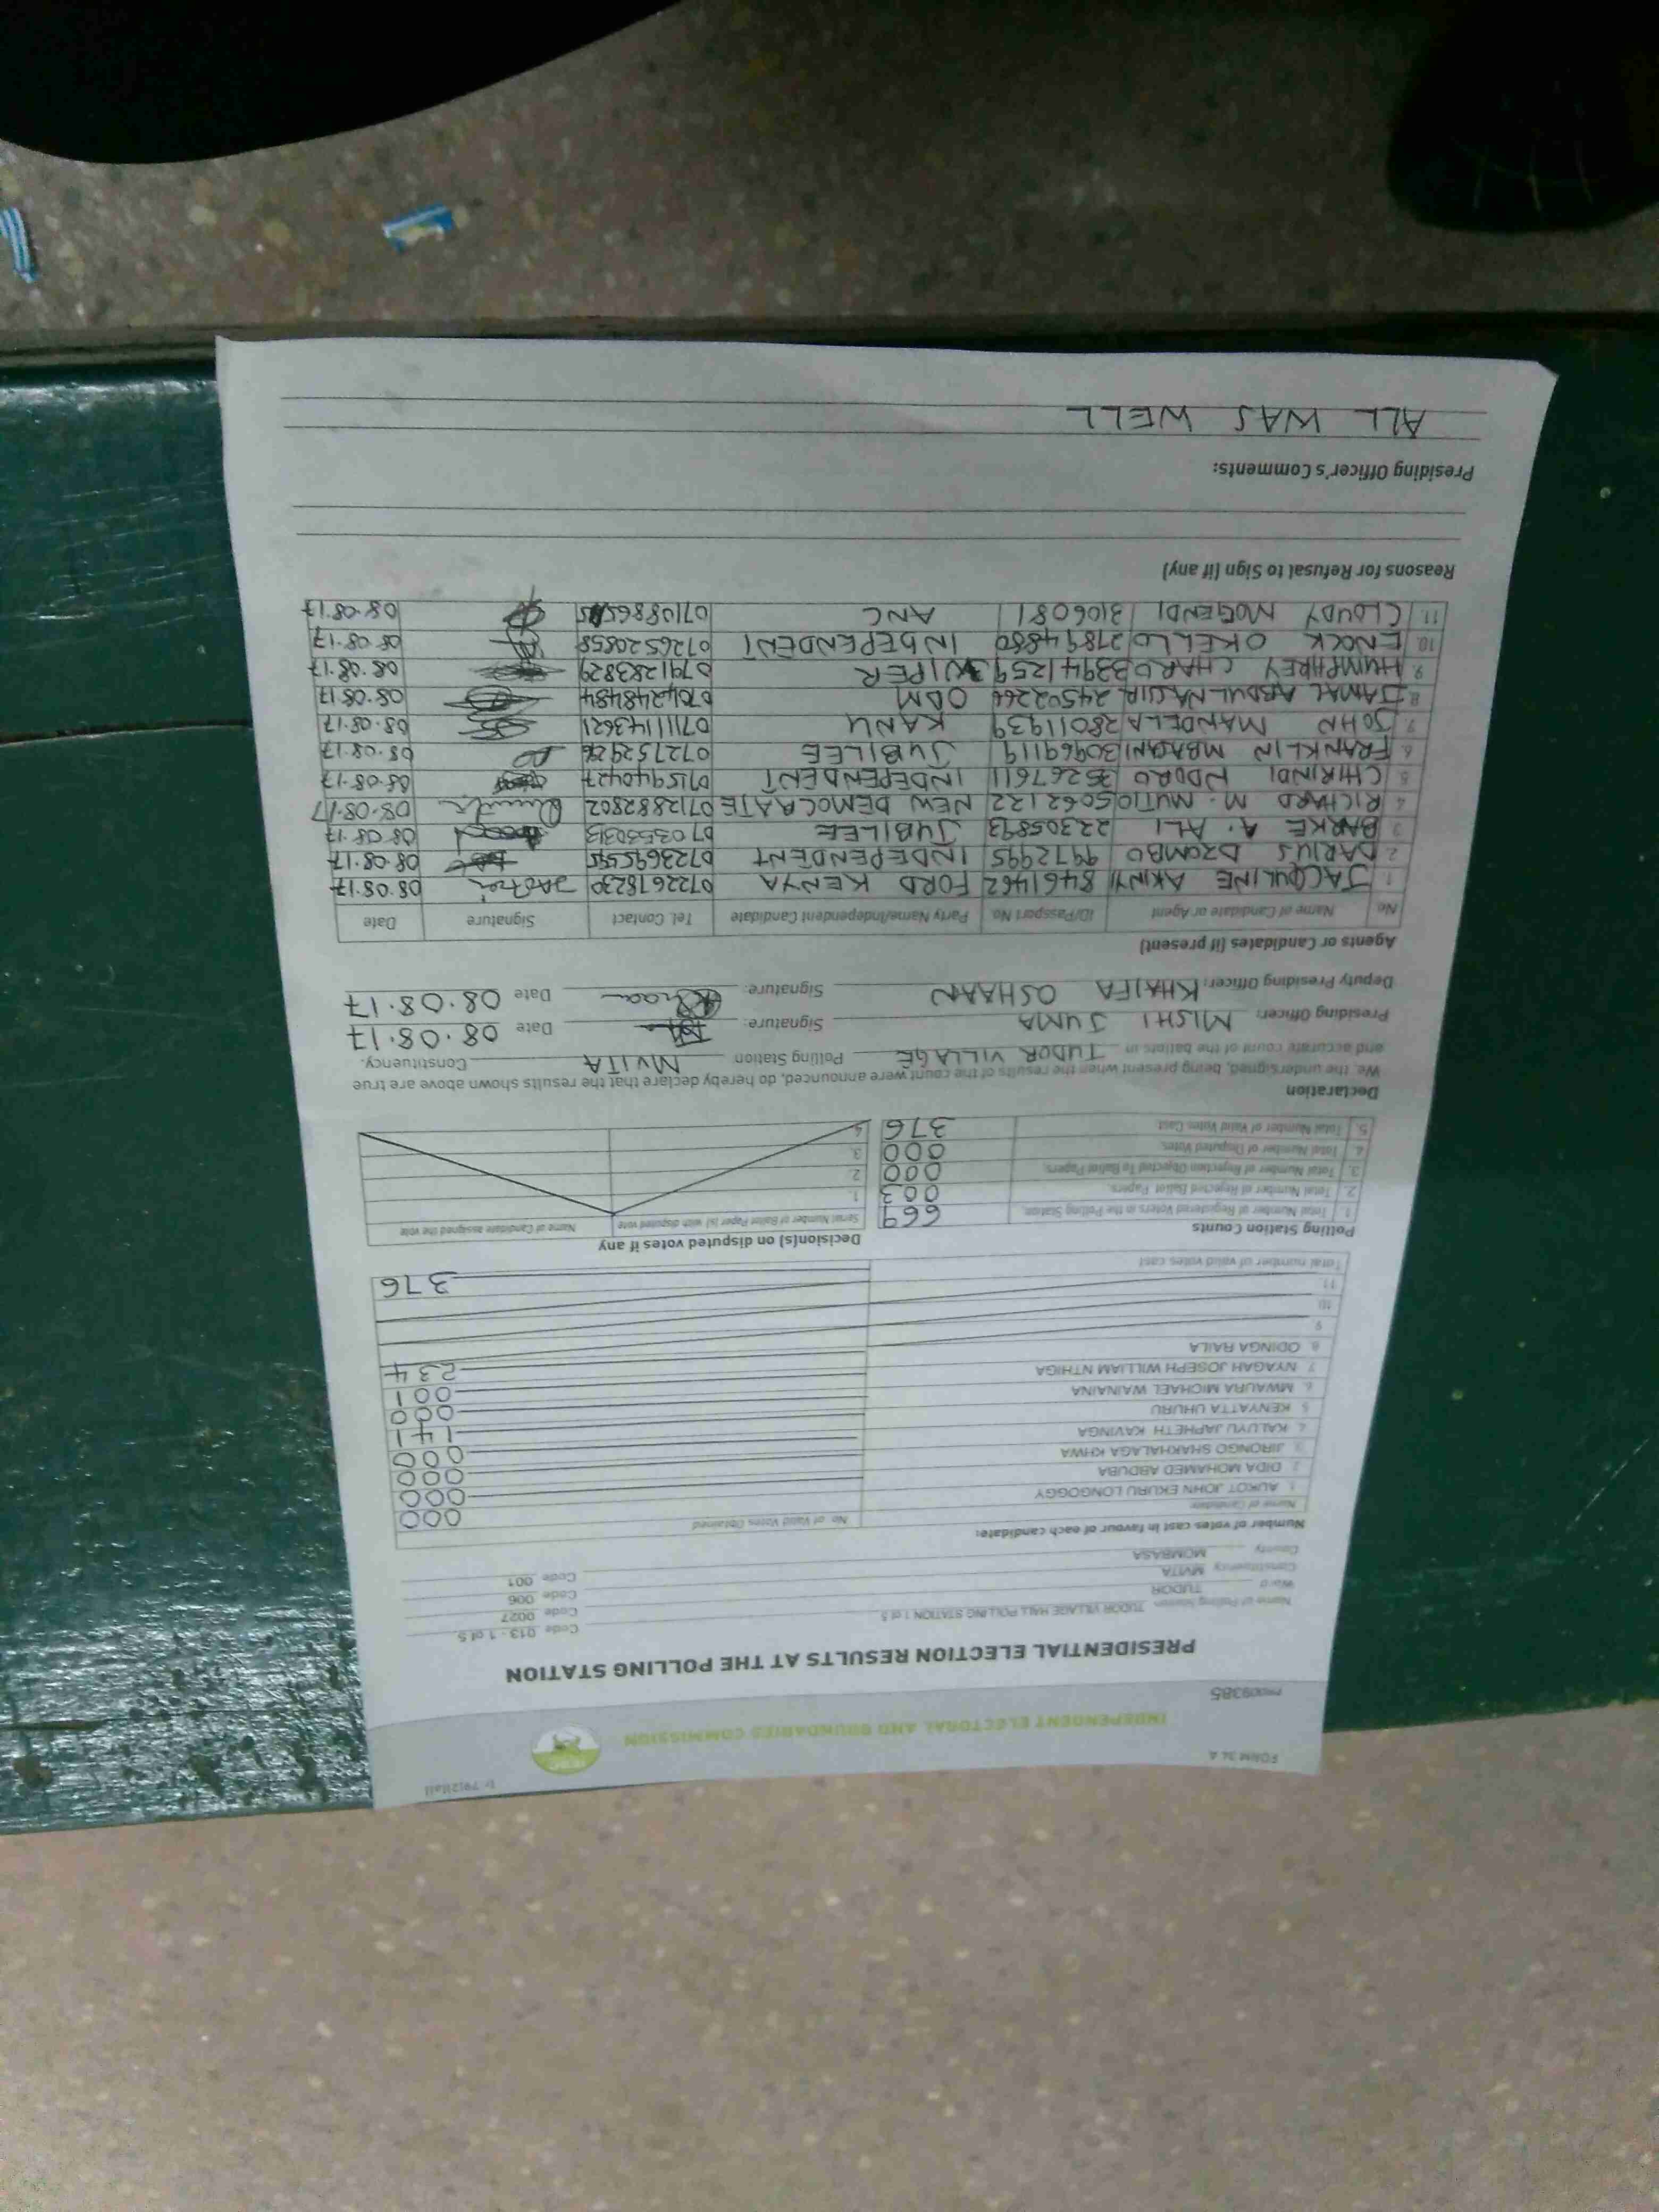 FORM 34 A
INDEPENDENT ELECTORAL AND BOUNDARIES COMMISSION
PRESIDENTIAL ELECTION RESULTS AT THE POLLING STATION
Name of Polling Station TUDOR VILLAGE HALL POLLING STATION 1 of 5 Code 013 - 1 of 5
Ward TUDOR Code 0027
Constituency MVITA Code 006
County MOMBASA Code 001
Number of votes cast in favour of each candidate:
Name of Candidate No. of Valid Votes Obtained
1. AUKOT JOHN EKURU LONGOGGY 000
2. DIDA MOHAMED ABDUBA 000
3. JIRONGO SHAKHALAGA KHWA 000
4. KALUYU JAPHETH KAVINGA 000
5. KENYATTA UHURU 141
6. MWAURA MICHAEL WAINAINA 000
7. NYAGAH JOSEPH WILLIAM NTHIGA 001
8. ODINGA RAILA 234
9
10
11
Total number of valid votes cast 376
Polling Station Counts
1. Total Number of Registered Voters in the Polling Station 669
2. Total Number of Rejected Ballot Papers. 003
3. Total Number of Rejection Objected To Ballot Papers 000
4. Total Number of Disputed Votes 000
5. Total Number of Valid Votes Cast 376
Decision(s) on disputed votes if any
Serial Number of Ballot Paper (s) with disputed vote Name of Candidate assigned the vote
1.
2.
3.
Declaration
We, the undersigned, being present when the results of the count were announced, do hereby declare that the results shown above are true
and accurate count of the ballots in TUDOR VILLAGE Polling Station MVITA Constituency.
Presiding Officer: MISHI JUMA Signature: Date 08.08.17
Deputy Presiding Officer: KHAIFA OSHAAN Signature: Date 08.08.17
Agents or Candidates (if present)
No Name of Candidate or Agent ID/Passport No. Party Name/Independent Candidate Tel. Contact Signature Date
1. JACQULINE AKINYI 8461462 FORD KENYA 0722678230 08.08.17
2. DARIUS DZOMBO 9972995 INDEPENDENT 08.08.17
3 BARKE A. ALI 22305893 JUBILEE 0703550313 08.08.17
4 RICHARD M. MUTIO 5062122 NEW DEMOCRATE 0712882302 08.08.17
5 CHIRINDI NDORO INDEPENDENT 0715940427 08.08.17
6 FRANKLIN 30969119 JUBILEE 08.08.17
7. JOHN MANDELA 28011939 KANU 0711143621 08.08.17
8. JAMAL ABDULNASIR 24502264 ODM 0704248484 08.08.17
9. HUMPHREY CHARO WIPER 0791283829 08.08.17
10. ENOCK OKELLO 27894880 INDEPENDENT 0726520858 08.08.17
11. CLOUDY MOGENDI 3106081 ANC 08.08.17
Reasons for Refusal to Sign (if any)
Presiding Officer's Comments:
ALL WAS WELL